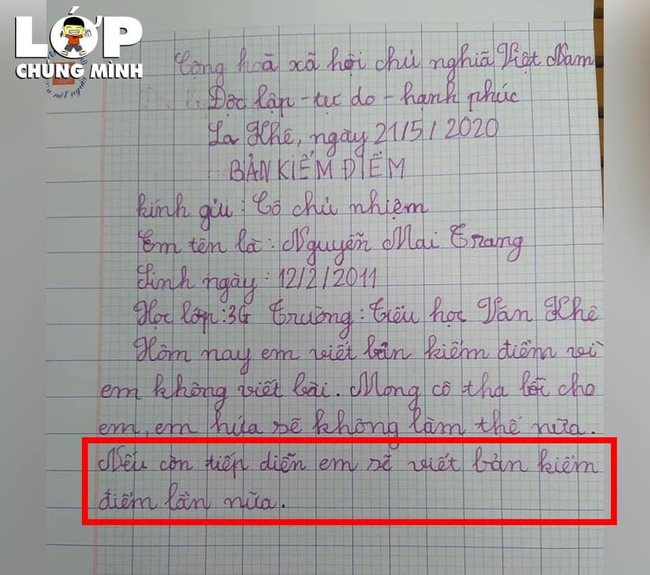 LỚP
CHÚNG MÌNH
Cộng hoà xã hội chủ nghĩa Việt Nam
Độc lập - tự do - hạnh phúc
La Khê, ngày 21/5/2020
BẢN KIỂM ĐIỂM
kính gửi: Cô chủ nhiệm
Em tên là: Nguyễn Mai Trang
Sinh ngày: 12/2/2011
Học lớp: 3G Trường: Tiểu học Văn Khê
Hôm nay em viết bản kiểm điểm vì
em không viết bài. Mong cô tha lỗi cho
em, em hứa sẽ không làm thế nữa.
Nếu còn tiếp diễn em sẽ viết bản kiểm
điểm lần nữa.